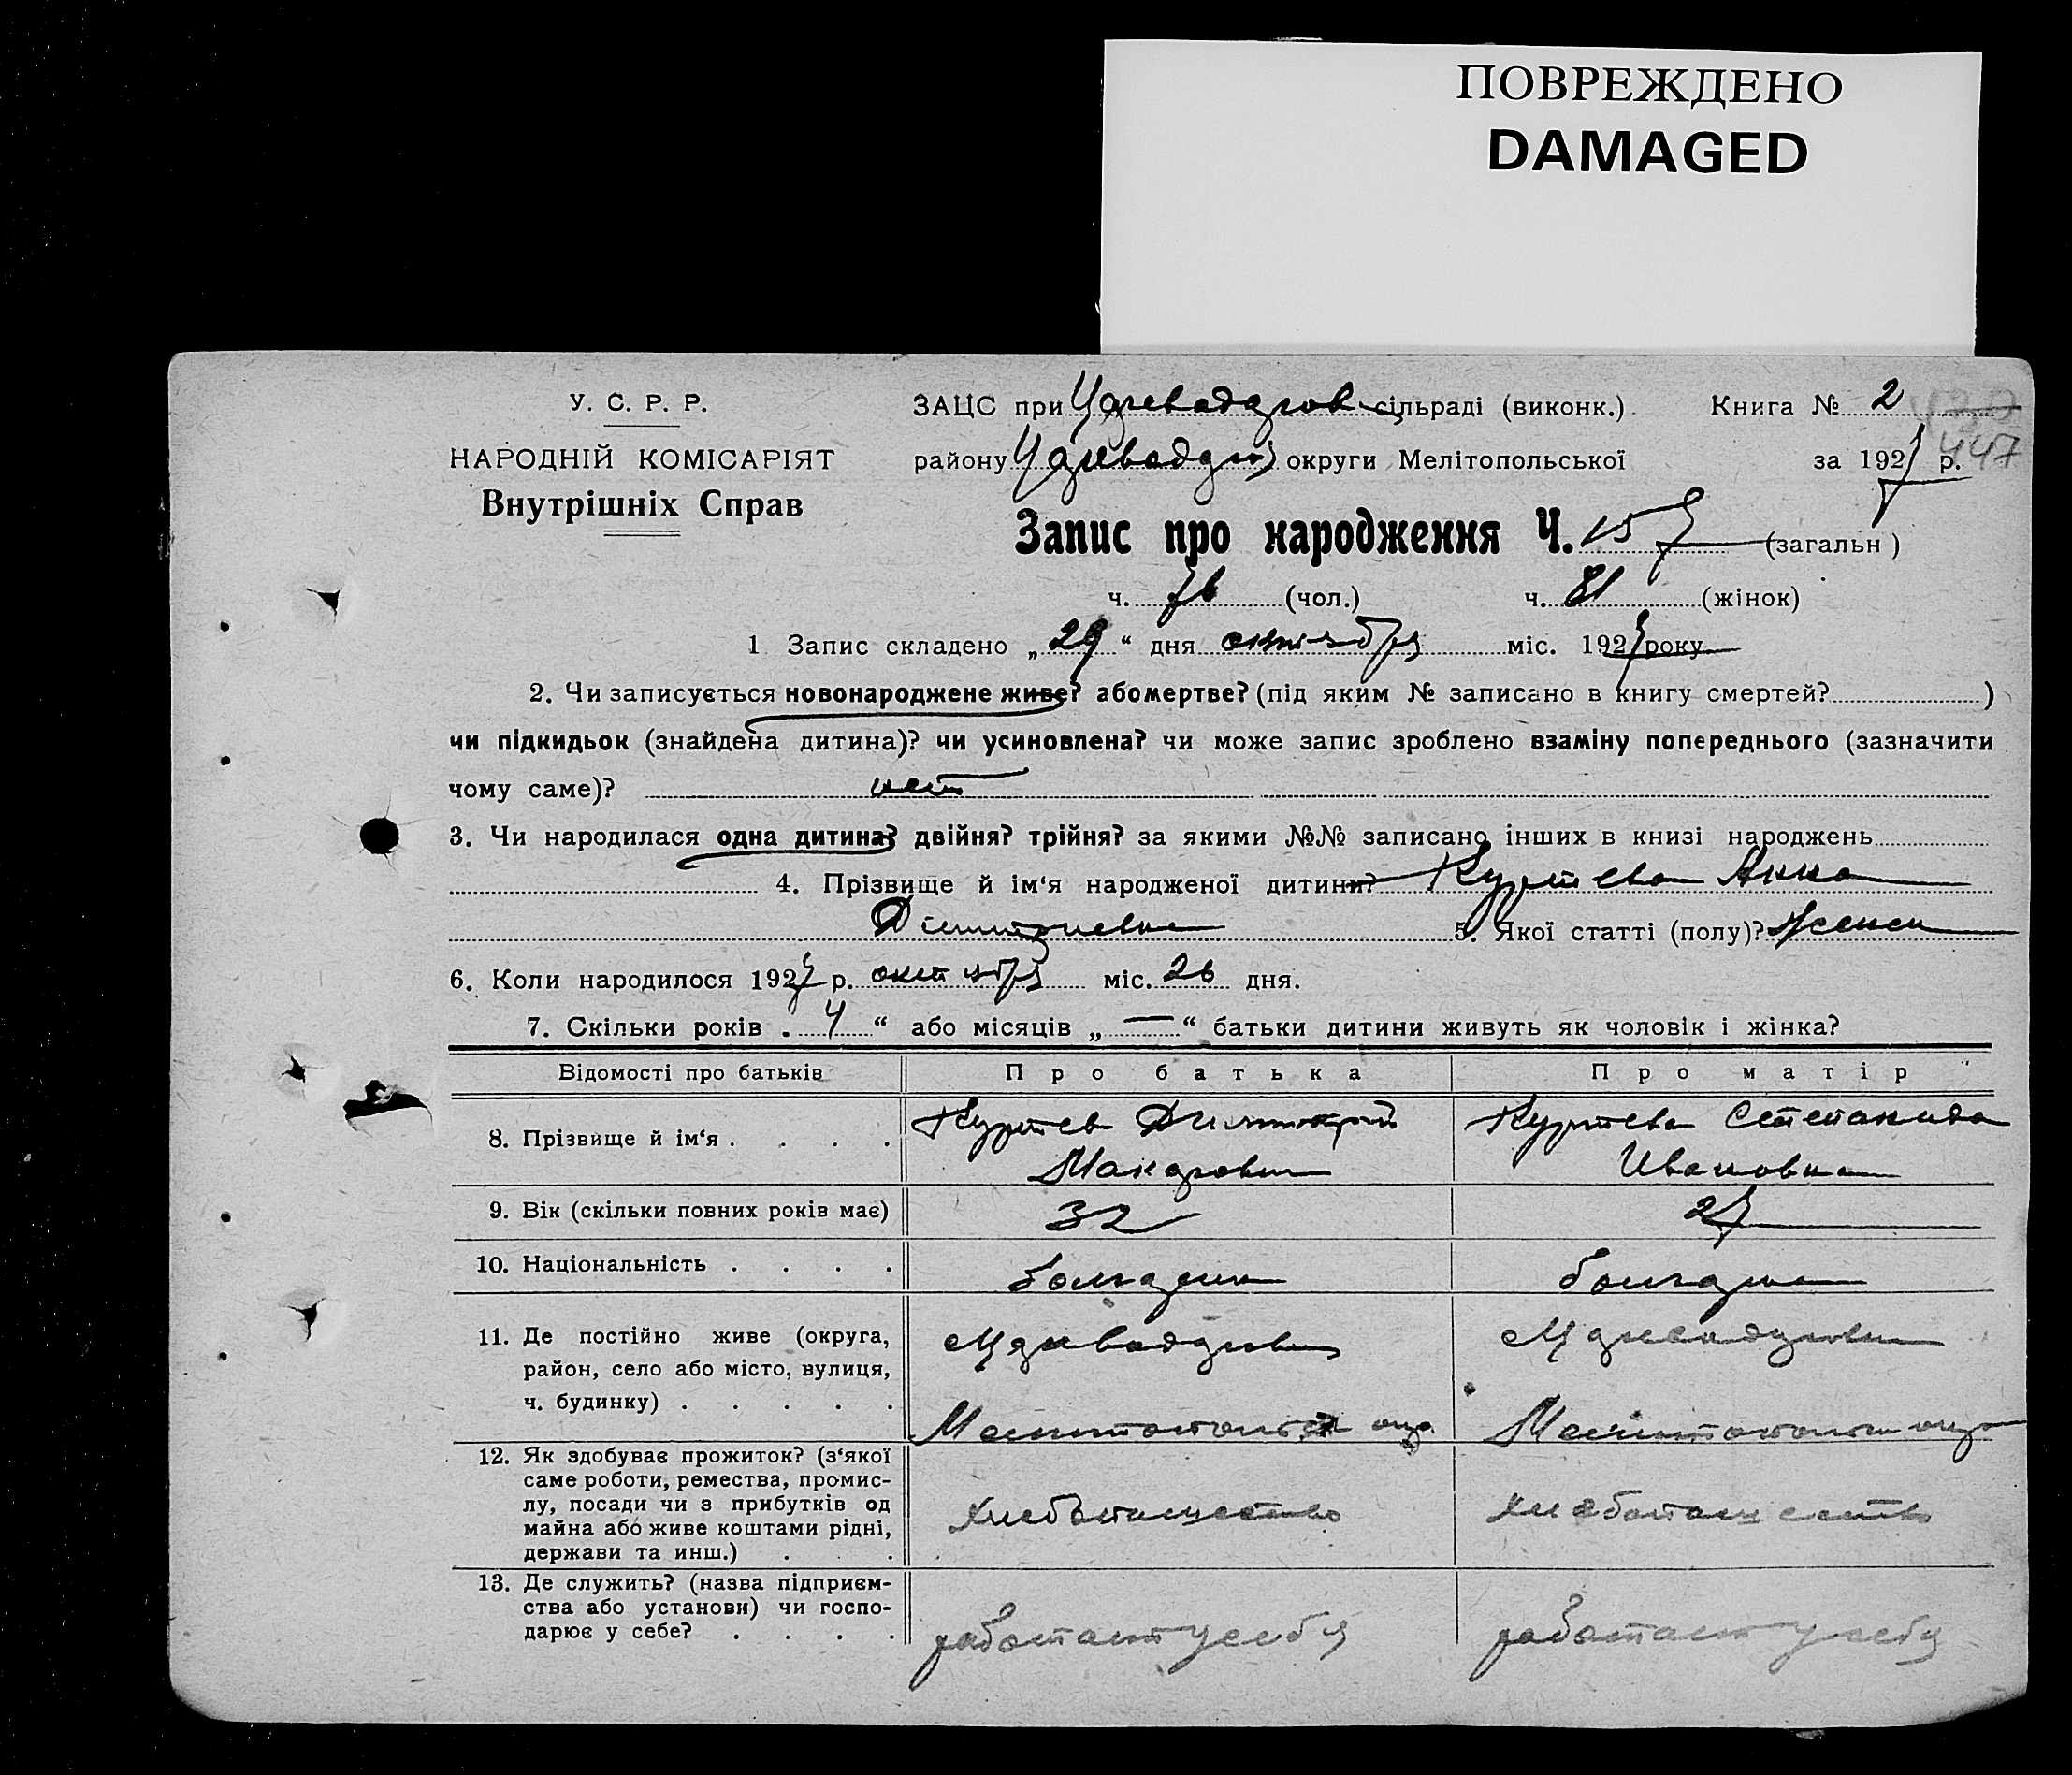 ПОВРЕЖДЕНО
DAMAGED
У. С. Р. Р.
НАРОДНІЙ КОМІСАРІЯТ
Внутрішніх Справ
ЗАЦС при сільраді (виконк.) Книга № 2
району округи Мелітопольської за 1927 р. 447
Запис про народження Ч. 157 (загальн)
ч. 76 (чол.) ч. 81 (жінок)
1 Запис складено „29“ дня октября міс. 1927 року
2. Чи записується новонароджене живе? або мертве? (під яким № записано в книгу смертей? )
чи підкидьок (знайдена дитина)? чи усиновлена? чи може запис зроблено взаміну попереднього (зазначити
чому саме)? нет
3. Чи народилася одна дитина? двійня? трійня? за якими №№ записано інших в книзі народжень
4. Прізвище й ім‘я народженої дитини? Куртева Анна
Дмитриевна 5. Якої статті (полу)? женск
6. Коли народилося 1927 р. октября міс. 26 дня.
7. Скільки років . 4 “ або місяців „ — “ батьки дитини живуть як чоловік і жінка?
Відомості про батьків Про батька Про матір
8. Прізвище й ім‘я . . . . Куртев Димитрий Куртева Степанида
Макарович Ивановна
9. Вік (скільки повних років має) 32 27
10. Національність . . . . болгарин болгарка
11. Де постійно живе (округа,
район, село або місто, вулиця,
ч. будинку) . . . . .
12. Як здобуває прожиток? (з‘якої
саме роботи, ремества, промис-
лу, посади чи з прибутків од
майна або живе коштами рідні,
держави та инш.) . . .
хлебопашество хлебопашество
13. Де служить? (назва підприєм-
ства або установи) чи госпо-
дарює у себе? . . . .
работает у себя работает у себя